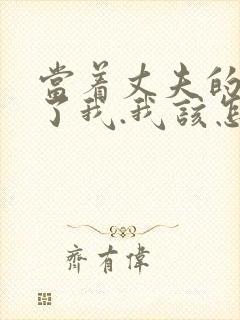 當着丈夫的
了我.我該怎
齊有偉